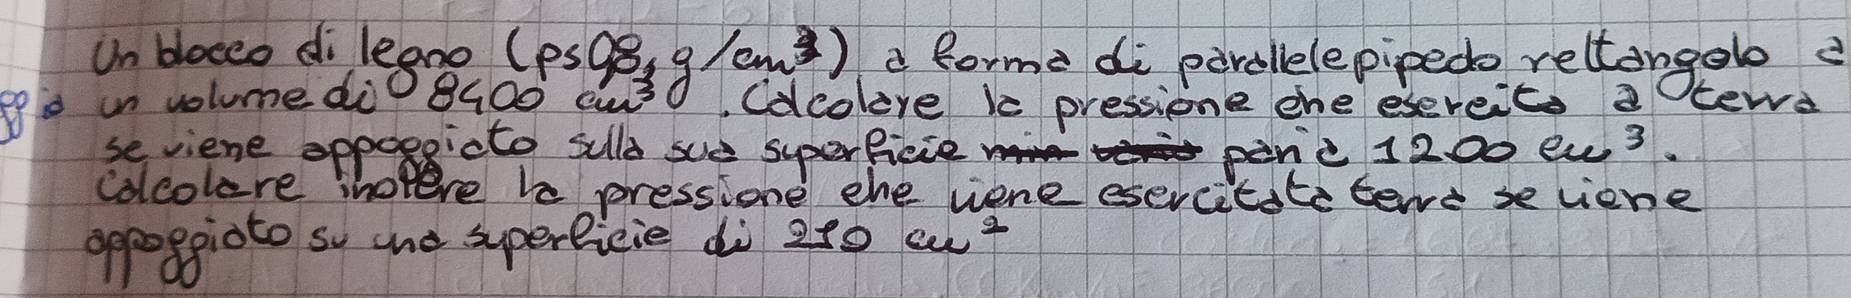 Un blocco di legno (ps 0,8 g/cm³) a forma di parallelepipedo rettangolo a
un volume di 8400 cm³. Calcolare la pressione che esercita a terra
se viene appoggiato sulla sua superficie pari a 1200 cm³.
Calcolare inoltre la pressione che viene esercitata terra se viene
appoggiato su una superficie di 210 cm²